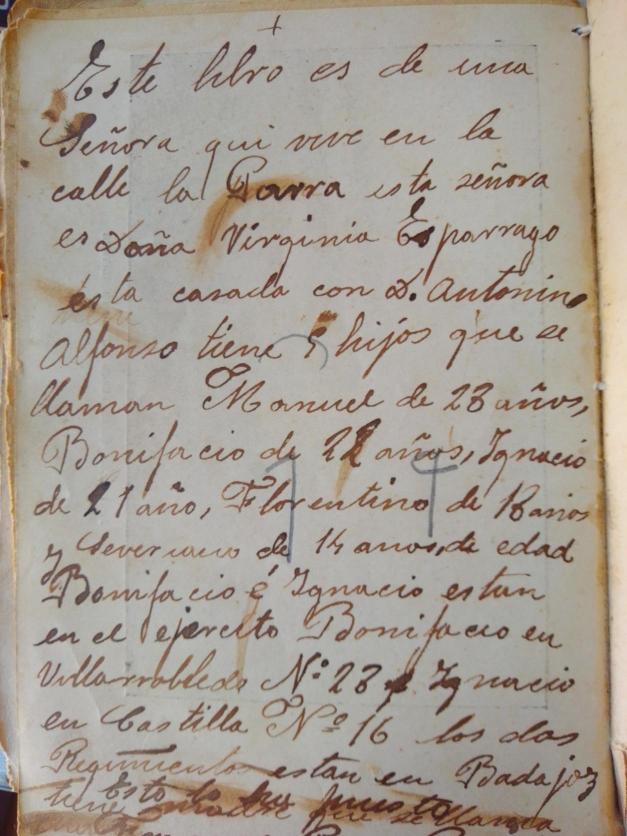 +
Este libro es de una
Señora qui vive en la
calle la Parra esta señora
es Doña Virginia Esparrago
ésta casada con D. Antonino
Alfonso tiene 5 hijos que se
llaman Manuel de 23 años,
Bonifacio de 22 años, Ygnacio
de 21 año, Florentino de 18 años
y Severiano de 14 anos, de edad
Bonifacio é Ygnacio estan
en el ejercito Bonifacio en
Villarrobledo Nº 23 y Ygnacio
en Castilla Nº 16 los dos
Regimientos estan en Badajoz
Esto lo puesto
tiene madre que se llama